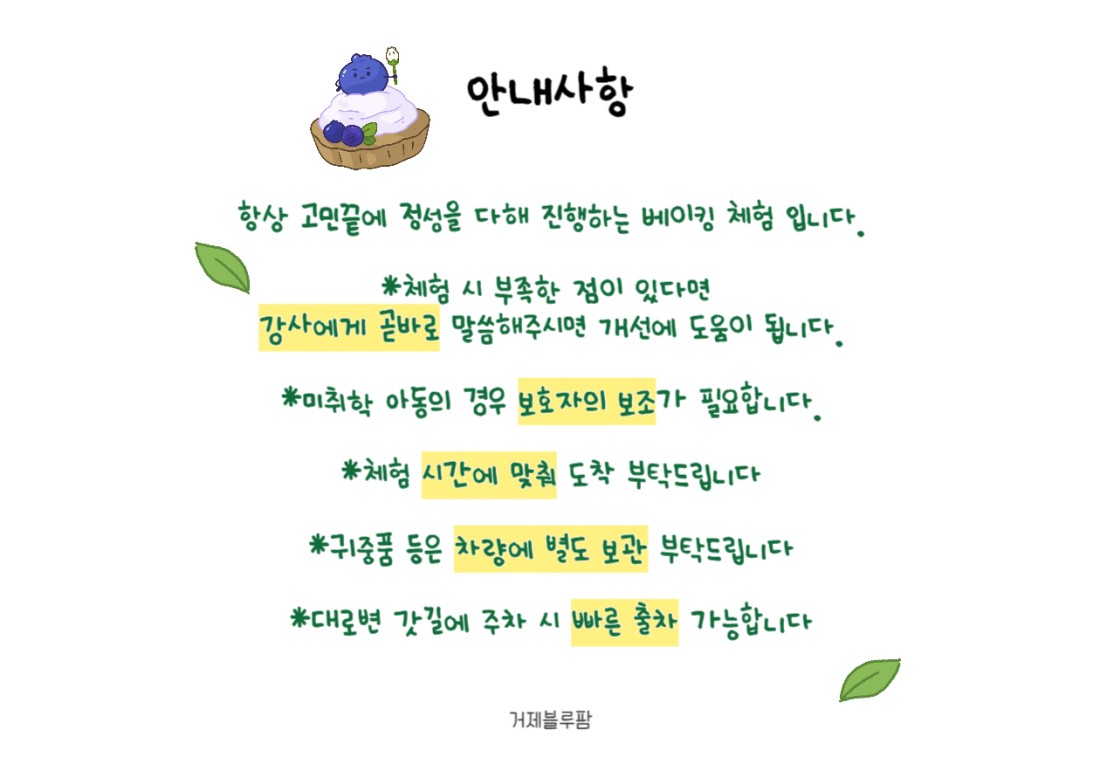 안내사항
항상 고민끝에 정성을 다해 진행하는 베이킹 체험 입니다.
*체험 시 부족한 점이 있다면
강사에게 곧바로 말씀해주시면 개선에 도움이 됩니다.
*미취학 아동의 경우 보호자의 보조가 필요합니다.
*체험 시간에 맞춰 도착 부탁드립니다
*귀중품 등은 차량에 별도 보관 부탁드립니다
*대로변 갓길에 주차 시 빠른 출차 가능합니다
거제블루팜